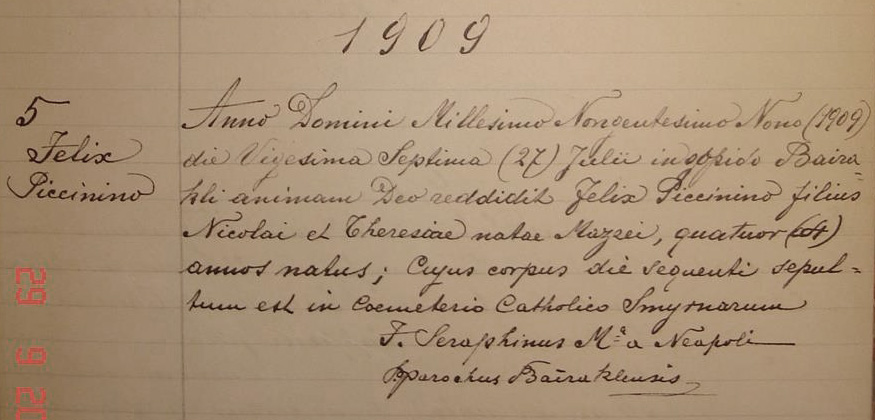 1909
5
Felix
Piccinino
Anno Domini Millesimo Nongentesimo Nono (1909)
die Vigesima Septima (27) Julii in oppido Baira-
kli animam Deo reddidit Felix Piccinino filius
Nicolai et Theresiae natae Mazzei, quatuor (4)
annos natus; Cujus corpus die sequenti sepul=
tum est in Coemeterio Catholico Smyrnarum
F. Seraphinus M.a a Neapoli
Parochus Bairakleusis
29 9 20